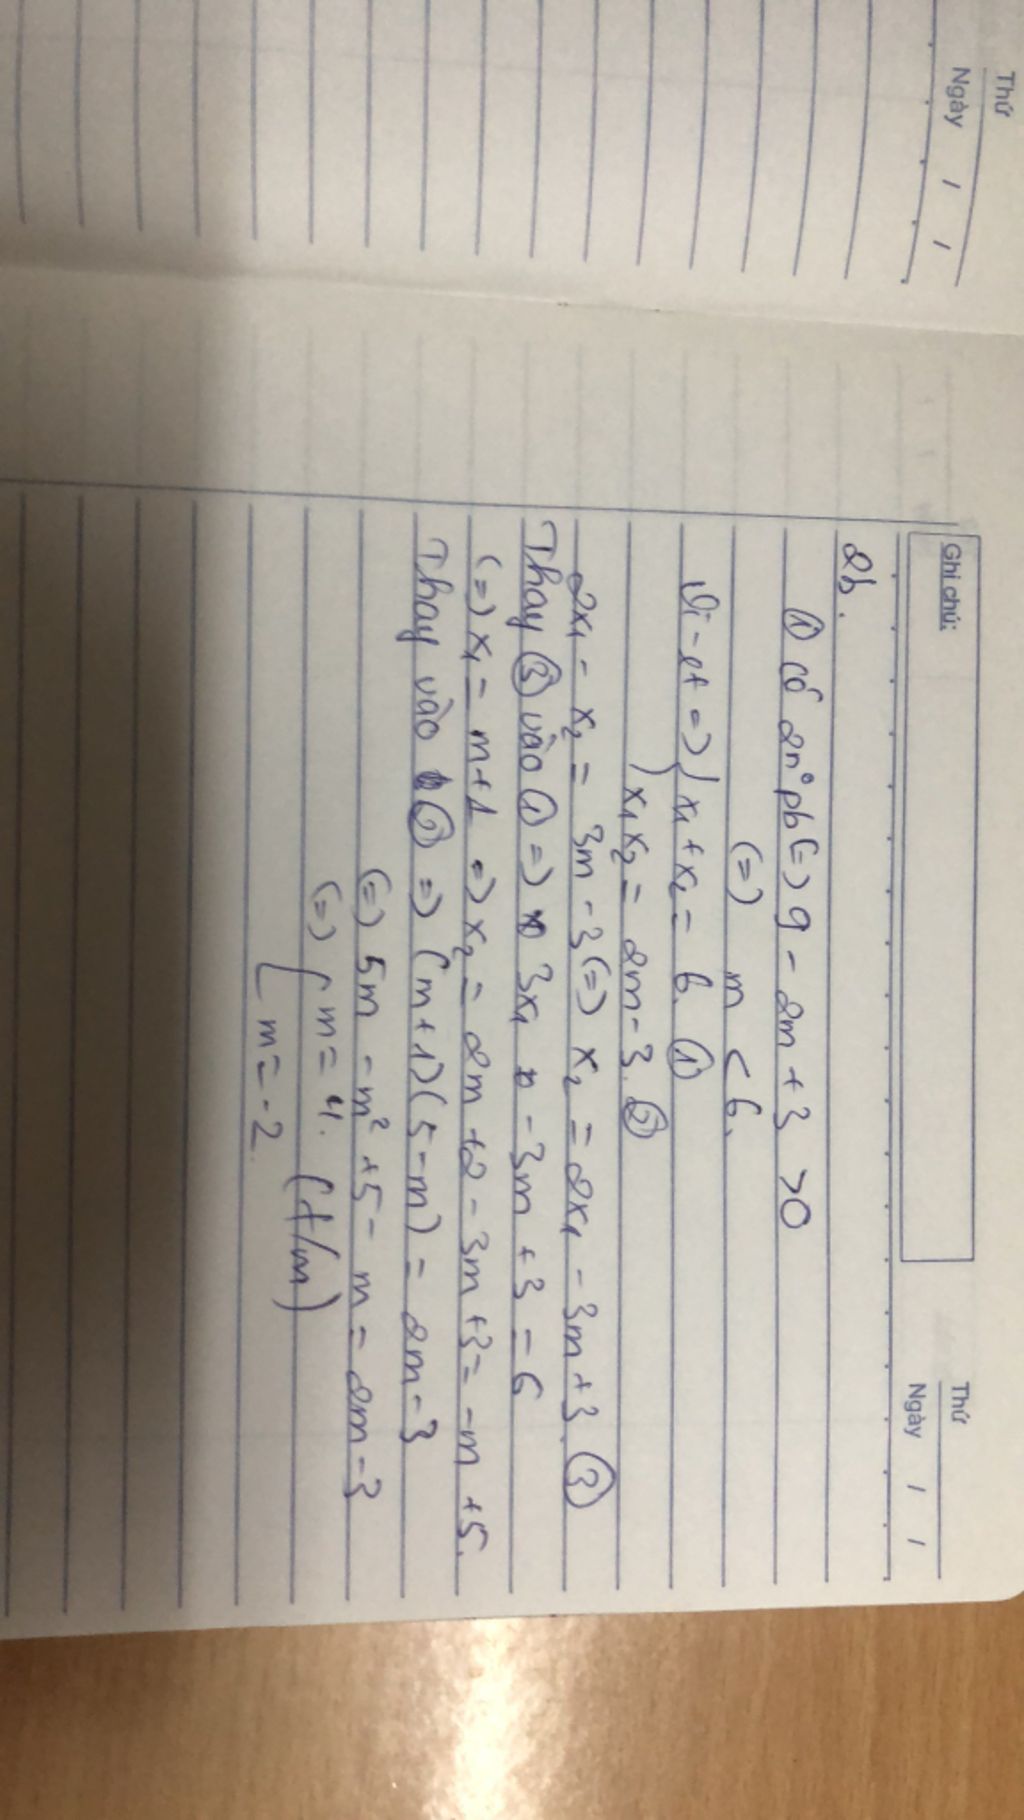 Thứ
Ngày / /
Ghi chú:
Thứ
Ngày / /
2b.
① có 2n° pb (=) 9 - 2m + 3 > 0
(=) m < 6.
Vi-et => { x₁ + x₂ = 6. ①
x₁x₂ = 2m - 3. ②
2x₁ - x₂ = 3m - 3 (=) x₂ = 2x₁ - 3m + 3. ③
Thay ③ vào ① => 3x₁ - 3m + 3 = 6
(=) x₁ = m + 1 => x₂ = 2m + 2 - 3m + 3 = -m + 5.
Thay vào ② => (m + 1)(5 - m) = 2m - 3
(=) 5m - m² + 5 - m = 2m - 3
(=) [ m = 4. (t/m)
m = -2.